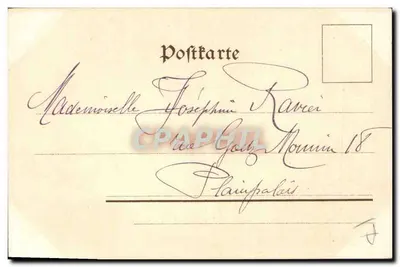 Postkarte
Mademoiselle Joséphine Ravier
CPAPHIL
rue Goetz Monnin 18
Plainpalais